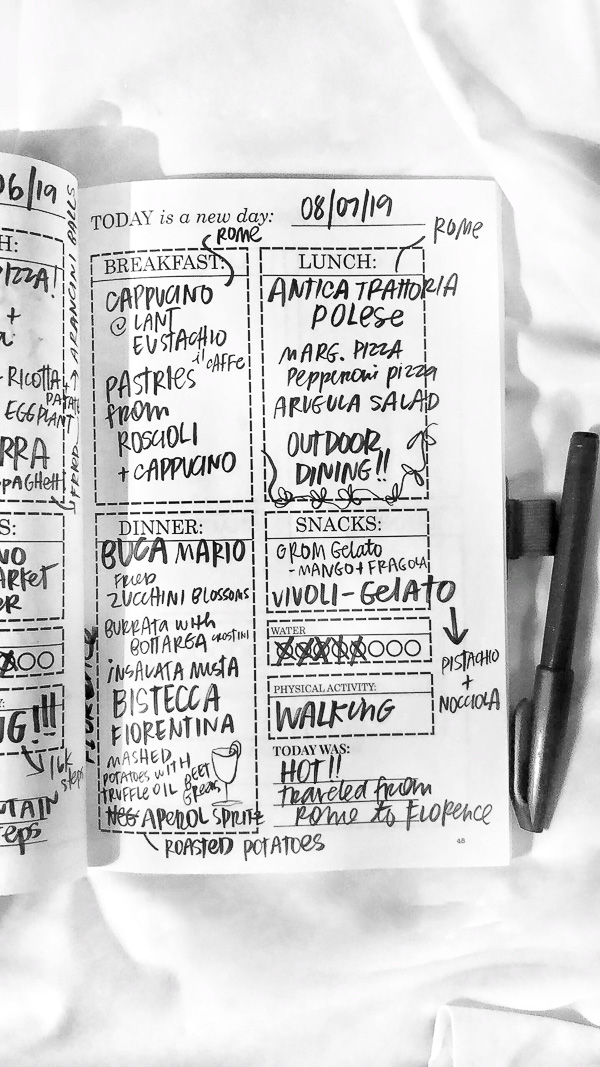 06/19
H:
PIZZA!
+
- RICOTTA
EGGPLANT
SPAGHETTI
FRIED
ARANCINI BALLS
S:
NO
MARKET
ER
OO
Y:
NG!!!
16K
steps
NTAIN
teps
TODAY is a new day: 08/07/19
ROME
BREAKFAST:
CAPPUCINO
@ SANT
EUSTACHIO
il CAFFE
PASTRIES
from
ROSCIOLI
+ CAPPUCINO
ROME
LUNCH:
ANTICA TRATTORIA
POLESE
MARG. PIZZA
Pepperoni pizza
ARUGULA SALAD
OUTDOOR
DINING!!
FLORENCE
DINNER:
BUCA MARIO
FRIED
ZUCCHINI BLOSSOMS
BURRATA with
BOTTARGA CROSTINI
INSALATA MISTA
BISTECCA
FIORENTINA
MASHED
POTATOES WITH
TRUFFLE OIL
BEET
GREENS
APEROL SPRITZ
ROASTED POTATOES
SNACKS:
GROM Gelato
- MANGO + FRAGOLA
VIVOLI - GELATO
PISTACHIO
+
NOCCIOLA
WATER
PHYSICAL ACTIVITY:
WALKING
TODAY WAS:
HOT!!
traveled from
ROME to FLORENCE
48